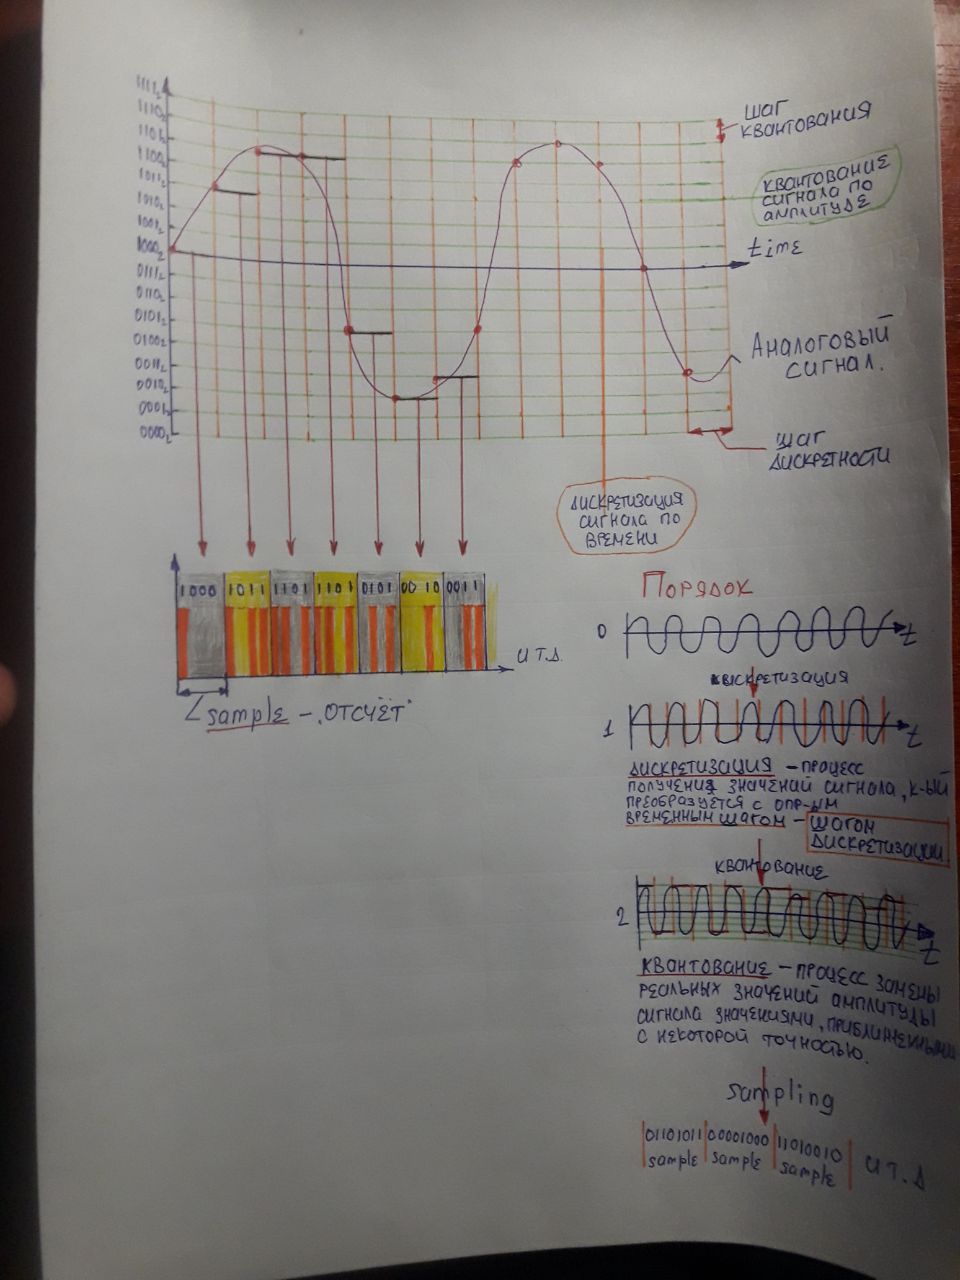 1111₂
1110₂
1101₂
1100₂
1011₂
1010₂
1001₂
1000₂
0111₂
0110₂
0101₂
0100₂
0011₂
0010₂
0001₂
0000₂
ШАГ
КВАНТОВАНИЯ
КВАНТОВАНИЕ
СИГНАЛА ПО
АМПЛИТУДЕ
time
АНАЛОГОВЫЙ
СИГНАЛ.
ШАГ
ДИСКРЕТНОСТИ
ДИСКРЕТИЗАЦИЯ
СИГНАЛА ПО
ВРЕМЕНИ
1000 1011 1101 1101 0101 0010 0011
И Т.Д.
sample – "ОТСЧЁТ"
ПОРЯДОК
0
t
1
t
ДИСКРЕТИЗАЦИЯ – ПРОЦЕСС
ПОЛУЧЕНИЯ ЗНАЧЕНИЙ СИГНАЛА, К-ЫЙ
ПРЕОБРАЗУЕТСЯ С ОПР-ЫМ
ВРЕМЕННЫМ ШАГОМ – ШАГОМ
ДИСКРЕТИЗАЦИИ
КВАНТОВАНИЕ
2
t
КВАНТОВАНИЕ – ПРОЦЕСС ЗАМЕНЫ
РЕАЛЬНЫХ ЗНАЧЕНИЙ АМПЛИТУДЫ
СИГНАЛА ЗНАЧЕНИЯМИ, ПРИБЛИЖЕННЫМИ
С НЕКОТОРОЙ ТОЧНОСТЬЮ.
sampling
01101011 00001000 11010010 И Т.Д
sample sample sample